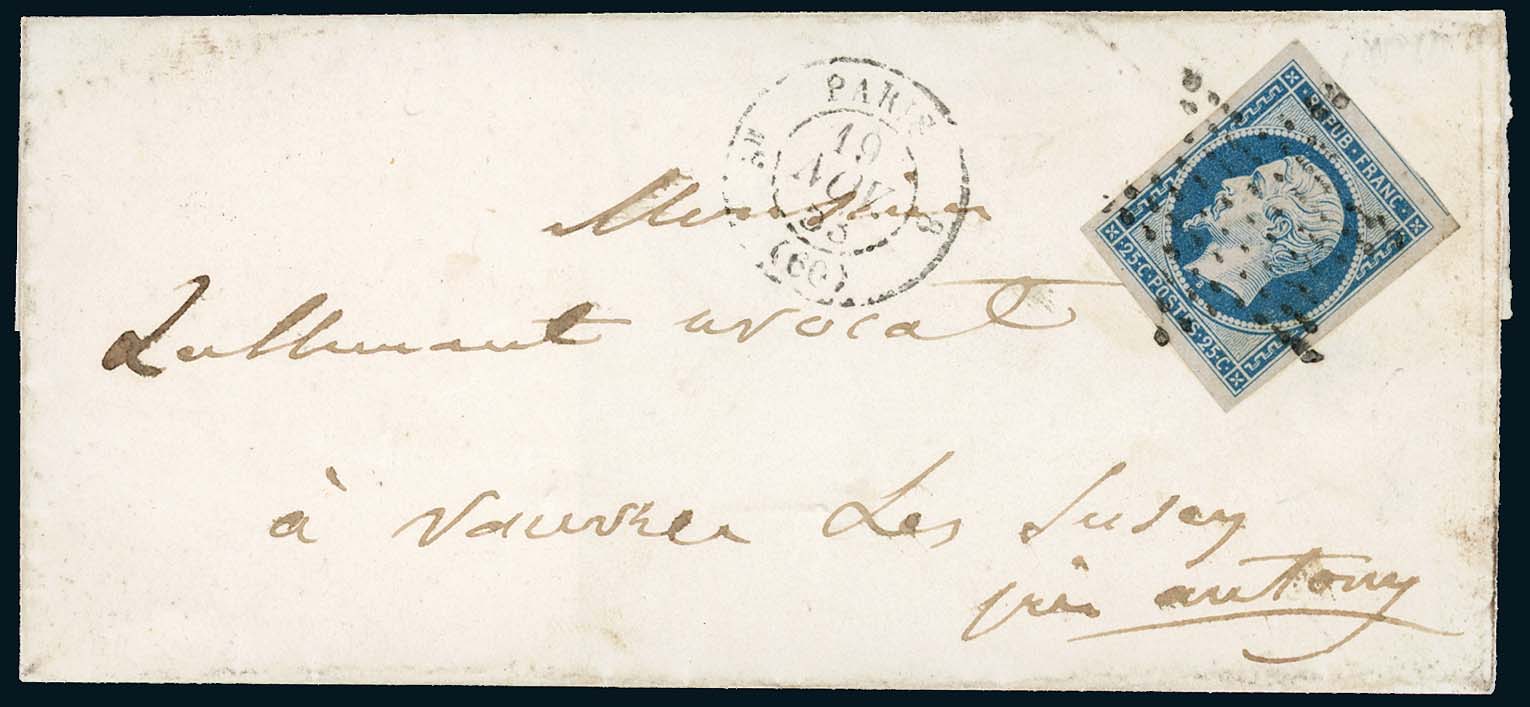 PARIS
19
NOV.
53
(60)
REPUB · FRANC ·
· 25 · C · POSTES · 25 · C ·
B
Monsieur
Lallemant avocat
à Vauvres Les
près antony